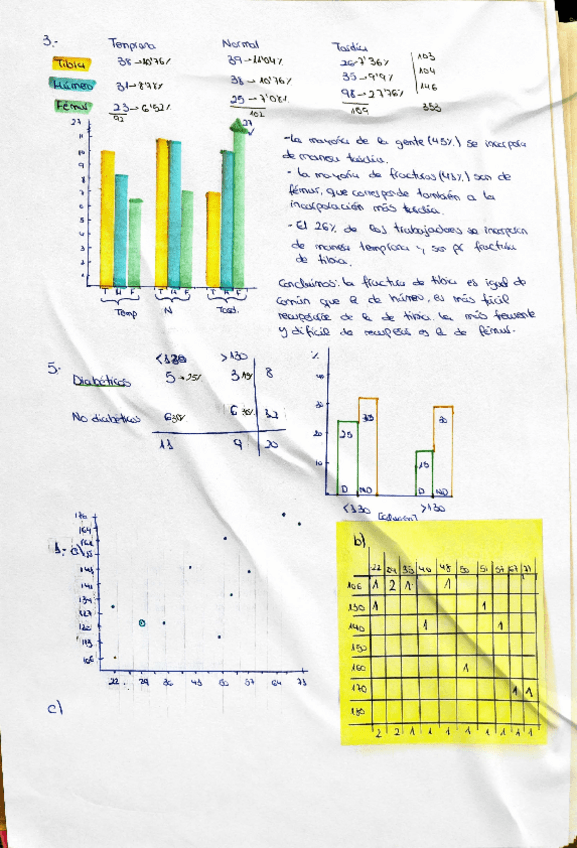 3.-
Temprana Normal Tardía
Tibia 38→10'76% 39→11'04% 26→7'36% 103
Húmero 31→8'78% 38→10'76% 35→9'9% 104
Fémur 23→6'52% 25→7'08% 98→27'76% 146
92 102 159 353
27
27
T H F T H F T H F
Temp N Tard.
-La mayoría de la gente (45%) se incorpora
de manera tardía.
- La mayoría de fracturas (41%) son de
fémur, que corresponde también a la
incorporación más tardía.
- El 26% de los trabajadores se incorporan
de manera temprana y son por fractura
de tibia.
Concluimos: la fractura de tibia es igual de
común que la de húmero, es más fácil
recuperarse de la de tibia. La más frecuente
y difícil de recuperar es la de fémur.
5.
<130 >130
Diabéticos 5→25% 3 15% 8
No diabéticos 6 30% 6 30%
11 9 20
%
40
30
20
10
25 15 30
D ND D ND
<130 >130
1.- a)
170
164
22 29 36 43 50 57 64 71
b)
22 29 35 40 48 50 51 57 67 71
106 1 2 1 1
130 1 1
140 1 1
150
160 1
170 1 1
180
2 2 1 1 1 1 1 1 1 1
c)